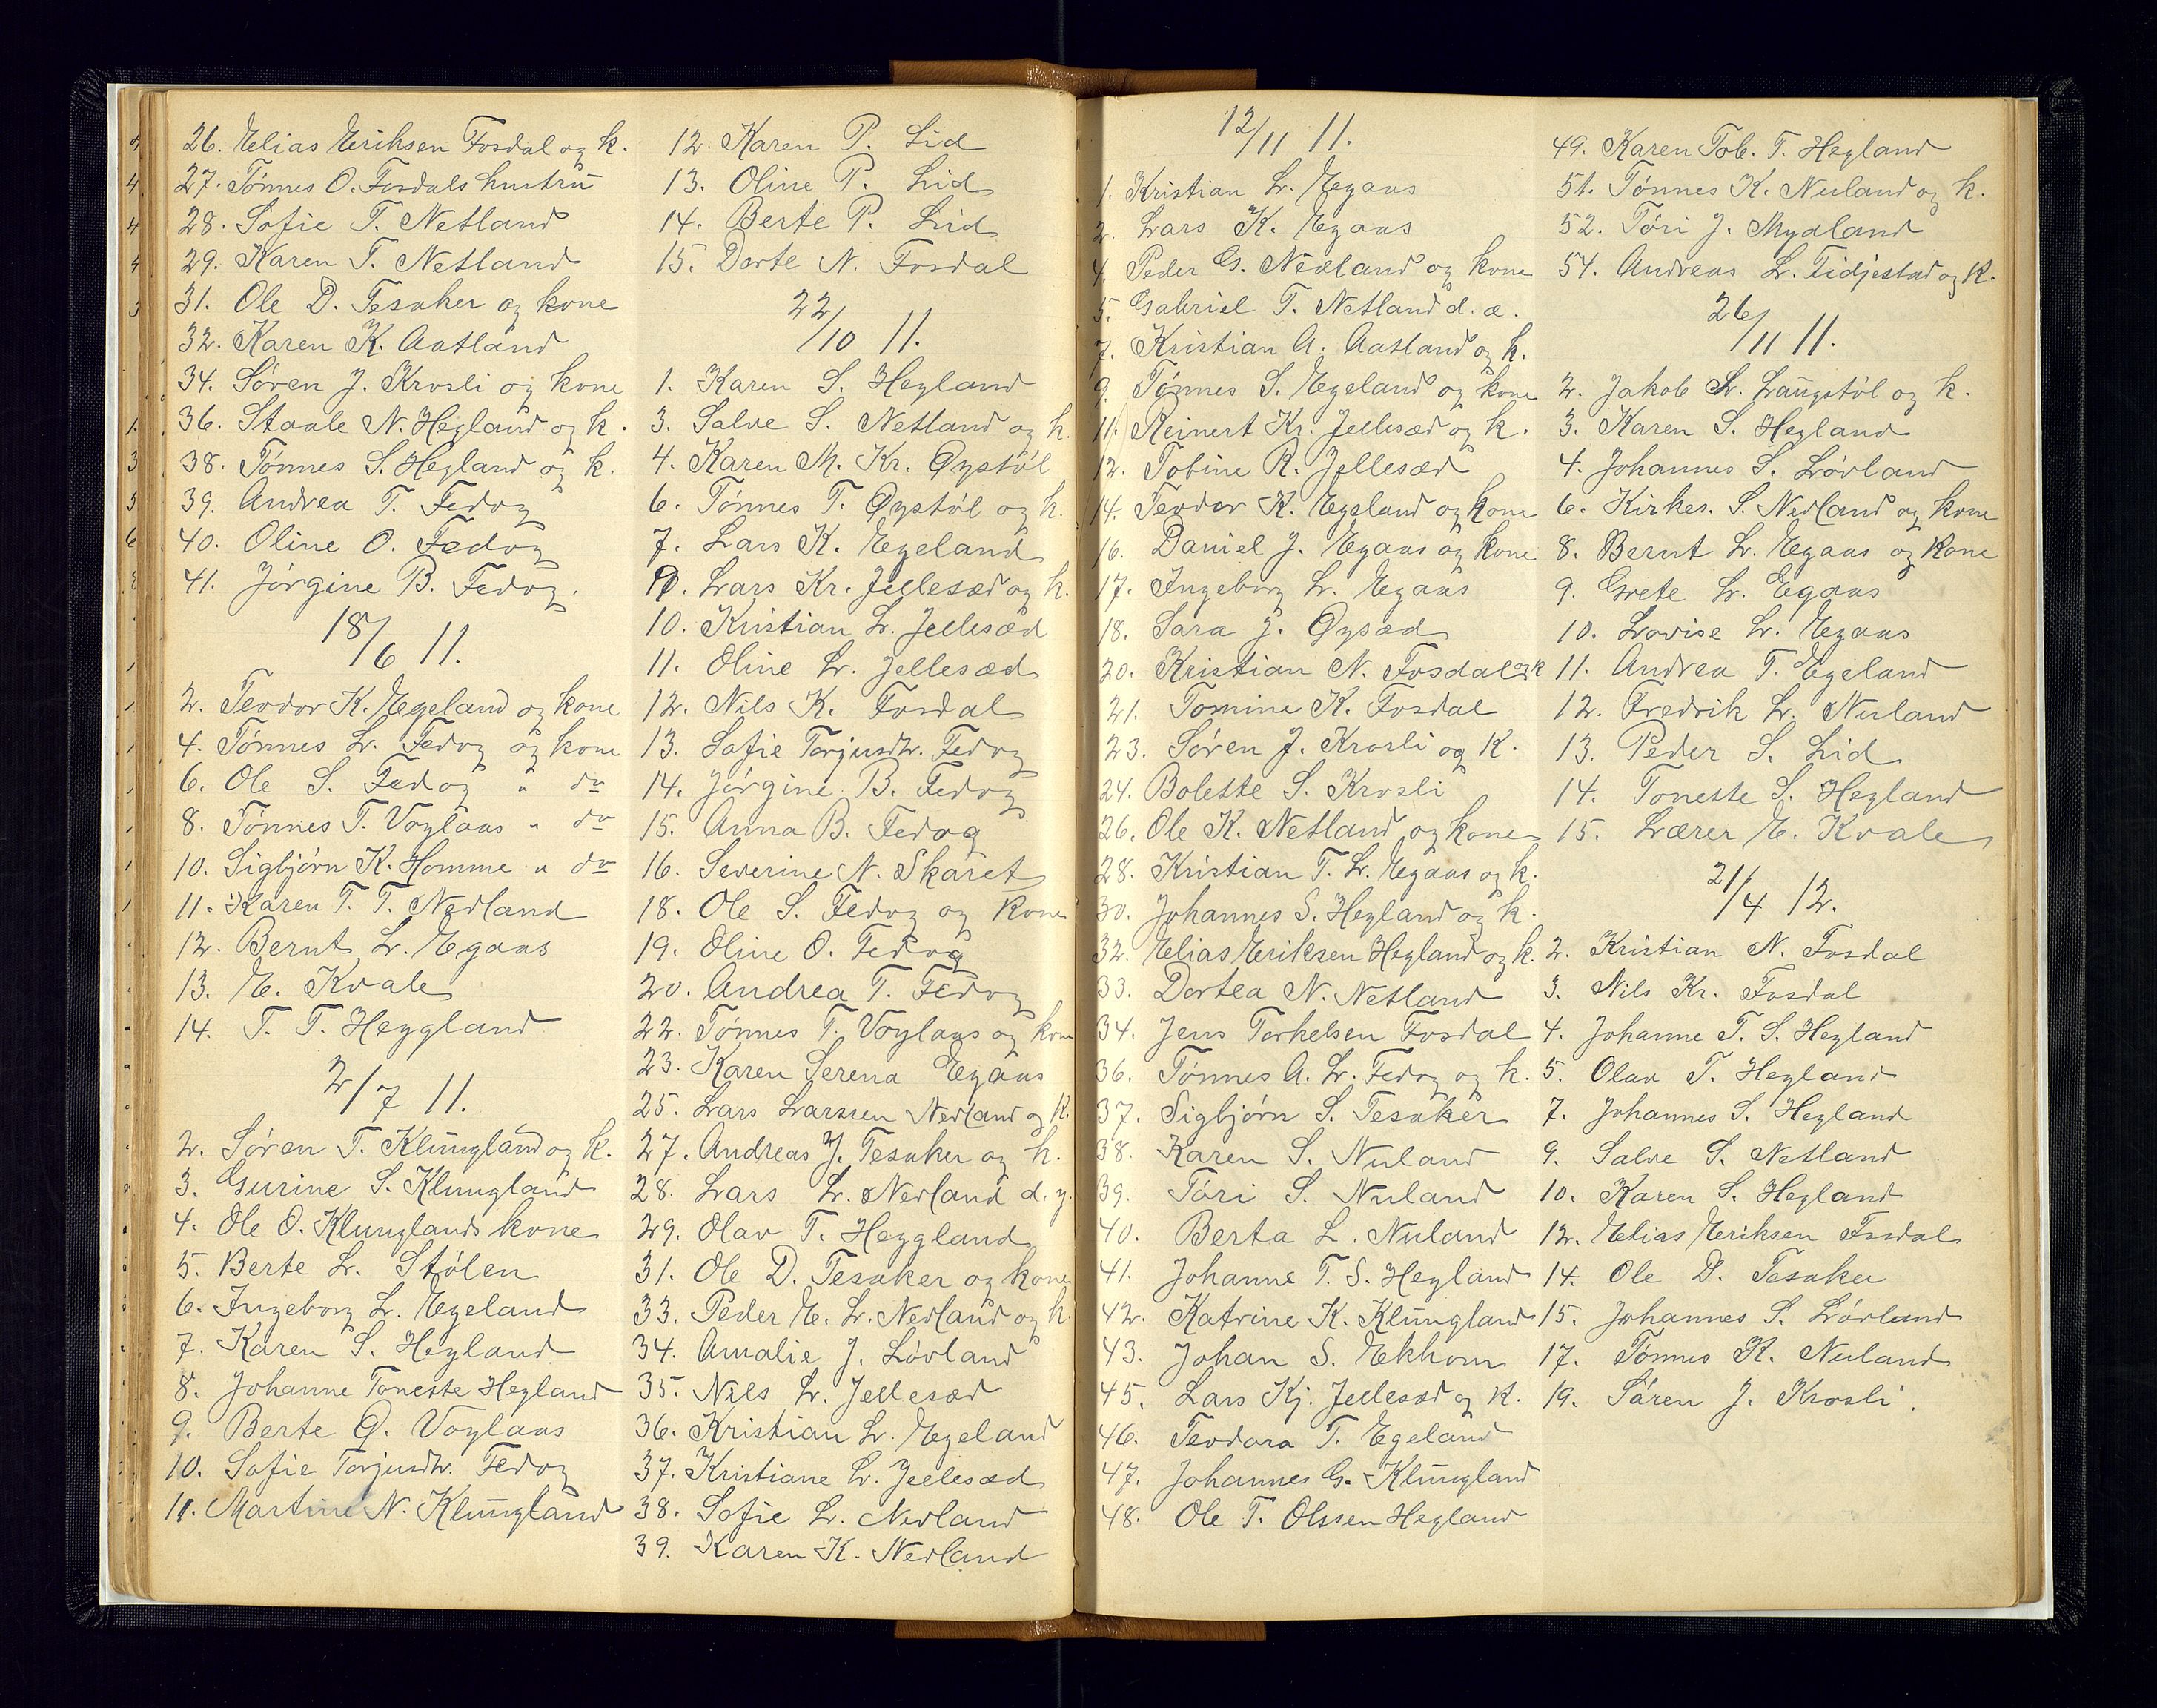 26. Elias Eriksen Fosdal og k.
27. Tønnes O. Fosdals hustru
28. Sofie T. Netland
29. Karen T. Netland
31. Ole D. Tesaker og kone
32. Karen K. Aatland
34. Søren J. Krosli og kone
36. Staale N. Hegland og k.
38. Tønnes S. Hegland og k.
39. Andrea T. Fedog
40. Oline O. Fedog
41. Jørgine B. Fedog.
18/6 11.
2. Teodor K. Egeland og kone
4. Tønnes Lr. Fedog og kone
6. Ole S. Fedog " do
8. Tønnes T. Voglaas " do
10. Sigbjørn K. Homme " do
11. Karen T. T. Nedland
12. Bernt Lr. Egaas
13. E. Kvale
14. T. T. Heggland
2/7 11.
2. Søren T. Klungland og k.
3. Gurine S. Klungland
4. Ole O. Klunglands kone
5. Berte Lr. Stølen
6. Ingeborg Lr. Egeland
7. Karen S. Hegland
8. Johanne Toneste Hegland
9. Berte O. Voglaas
10. Sofie Torjusdtr. Fedog
11. Martine N. Klungland
12. Karen P. Lid
13. Oline P. Lid
14. Berte P. Lid
15. Dorte N. Fosdal
22/10 11.
1. Karen S. Hegland
3. Salve S. Netland og k.
4. Karen M. Kr. Øystøl
6. Tønnes T. Øystøl og k.
7. Lars K. Egeland
9. Lars Kr. Jellesæd og k.
10. Kristian Lr. Jellesæd
11. Oline Lr. Jellesæd
12. Nils K. Fosdal
13. Sofie Torjusdtr. Fedog
14. Jørgine B. Fedog
15. Anna B. Fedog
16. Severine N. Skaret
18. Ole S. Fedog og kone
19. Oline O. Fedog
20. Andrea T. Fedog
22. Tønnes T. Voglaas og kone
23. Karen Serena Egaas
25. Lars Larssen Nedland og k.
27. Andreas J. Tesaker og k.
28. Lars Lr. Nedland d. y.
29. Olav T. Heggland
31. Ole D. Tesaker og kone
33. Peder E. Lr. Nedland og k.
34. Amalie J. Løvland
35. Nils Lr. Jellesæd
36. Kristian Lr. Egeland
37. Kristiane Lr. Jellesæd
38. Sofie Lr. Nedland
39. Karen K. Nedland
12/11 11.
1. Kristian Lr. Egaas
2. Lars K. Egaas
4. Peder G. Nedland og kone
5. Gabriel T. Netland d. æ.
7. Kristian A. Aatland og k.
9. Tønnes S. Egeland og kone
11. Reinert Kr. Jellesæd og k.
12. Tobine R. Jellesæd
14. Teodor K. Egeland og kone
16. Daniel J. Egaas og kone
17. Ingeborg Lr. Egaas
18. Sara J. Øysæd
20. Kristian N. Fosdal og k
21. Tomine K. Fosdal
23. Søren J. Krosli og k.
24. Bolette S. Krosli
26. Ole K. Netland og kone
28. Kristian T. Lr. Egaas og k.
30. Johannes S. Hegland og k.
32. Elias Eriksen Hegland og k.
33. Dortea N. Netland
34. Jens Terkelsen Fosdal
36. Tønnes A. Lr. Fedog og k.
37. Sigbjørn S. Tesaker
38. Karen S. Nuland
39. Tøri S. Nuland
40. Berta L. Nuland
41. Johanne T. S. Hegland
42. Katrine K. Klungland
43. Johan S. Ekhom
45. Lars Kj. Jellesæd og k.
46. Teodora T. Egeland
47. Johannes G. Klungland
48. Ole T. Olssen Hegland
49. Karen Tob. T. Hegland
51. Tønnes K. Nuland og k.
52. Tøri J. Mydland
54. Andreas Lr. Tidjestad og k.
26/11 11.
2. Jakob Lr. Langstøl og k.
3. Karen S. Hegland
4. Johannes S. Løvland
6. Kirkes. S. Nedland og kone
8. Bernt Lr. Egaas og kone
9. Grete Lr. Egaas
10. Lovise Lr. Egaas
11. Andrea T. Egeland
12. Fredrik Lr. Nuland
13. Peder S. Lid
14. Tonette S. Hegland
15. Lærer E. Kvale
21/4 12.
2. Kristian N. Fosdal
3. Nils Kr. Fosdal
4. Johanne T. S. Hegland
5. Olav T. Hegland
7. Johannes S. Hegland
9. Salve S. Netland
10. Karen S. Hegland
12. Elias Eriksen Fosdal
14. Ole D. Tesaker
15. Johannes S. Løvland
17. Tønnes K. Nuland
19. Søren J. Krosli.